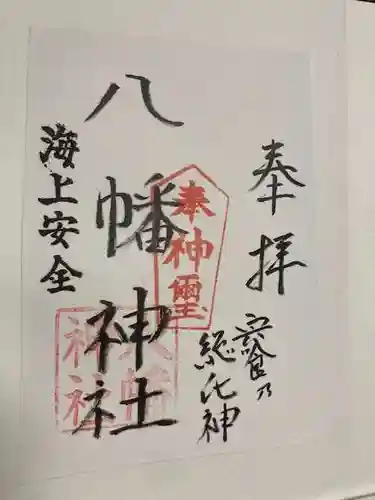 奉拝
宍喰乃
総氏神
八幡神社
海上安全
奉神璽
八幡
神社